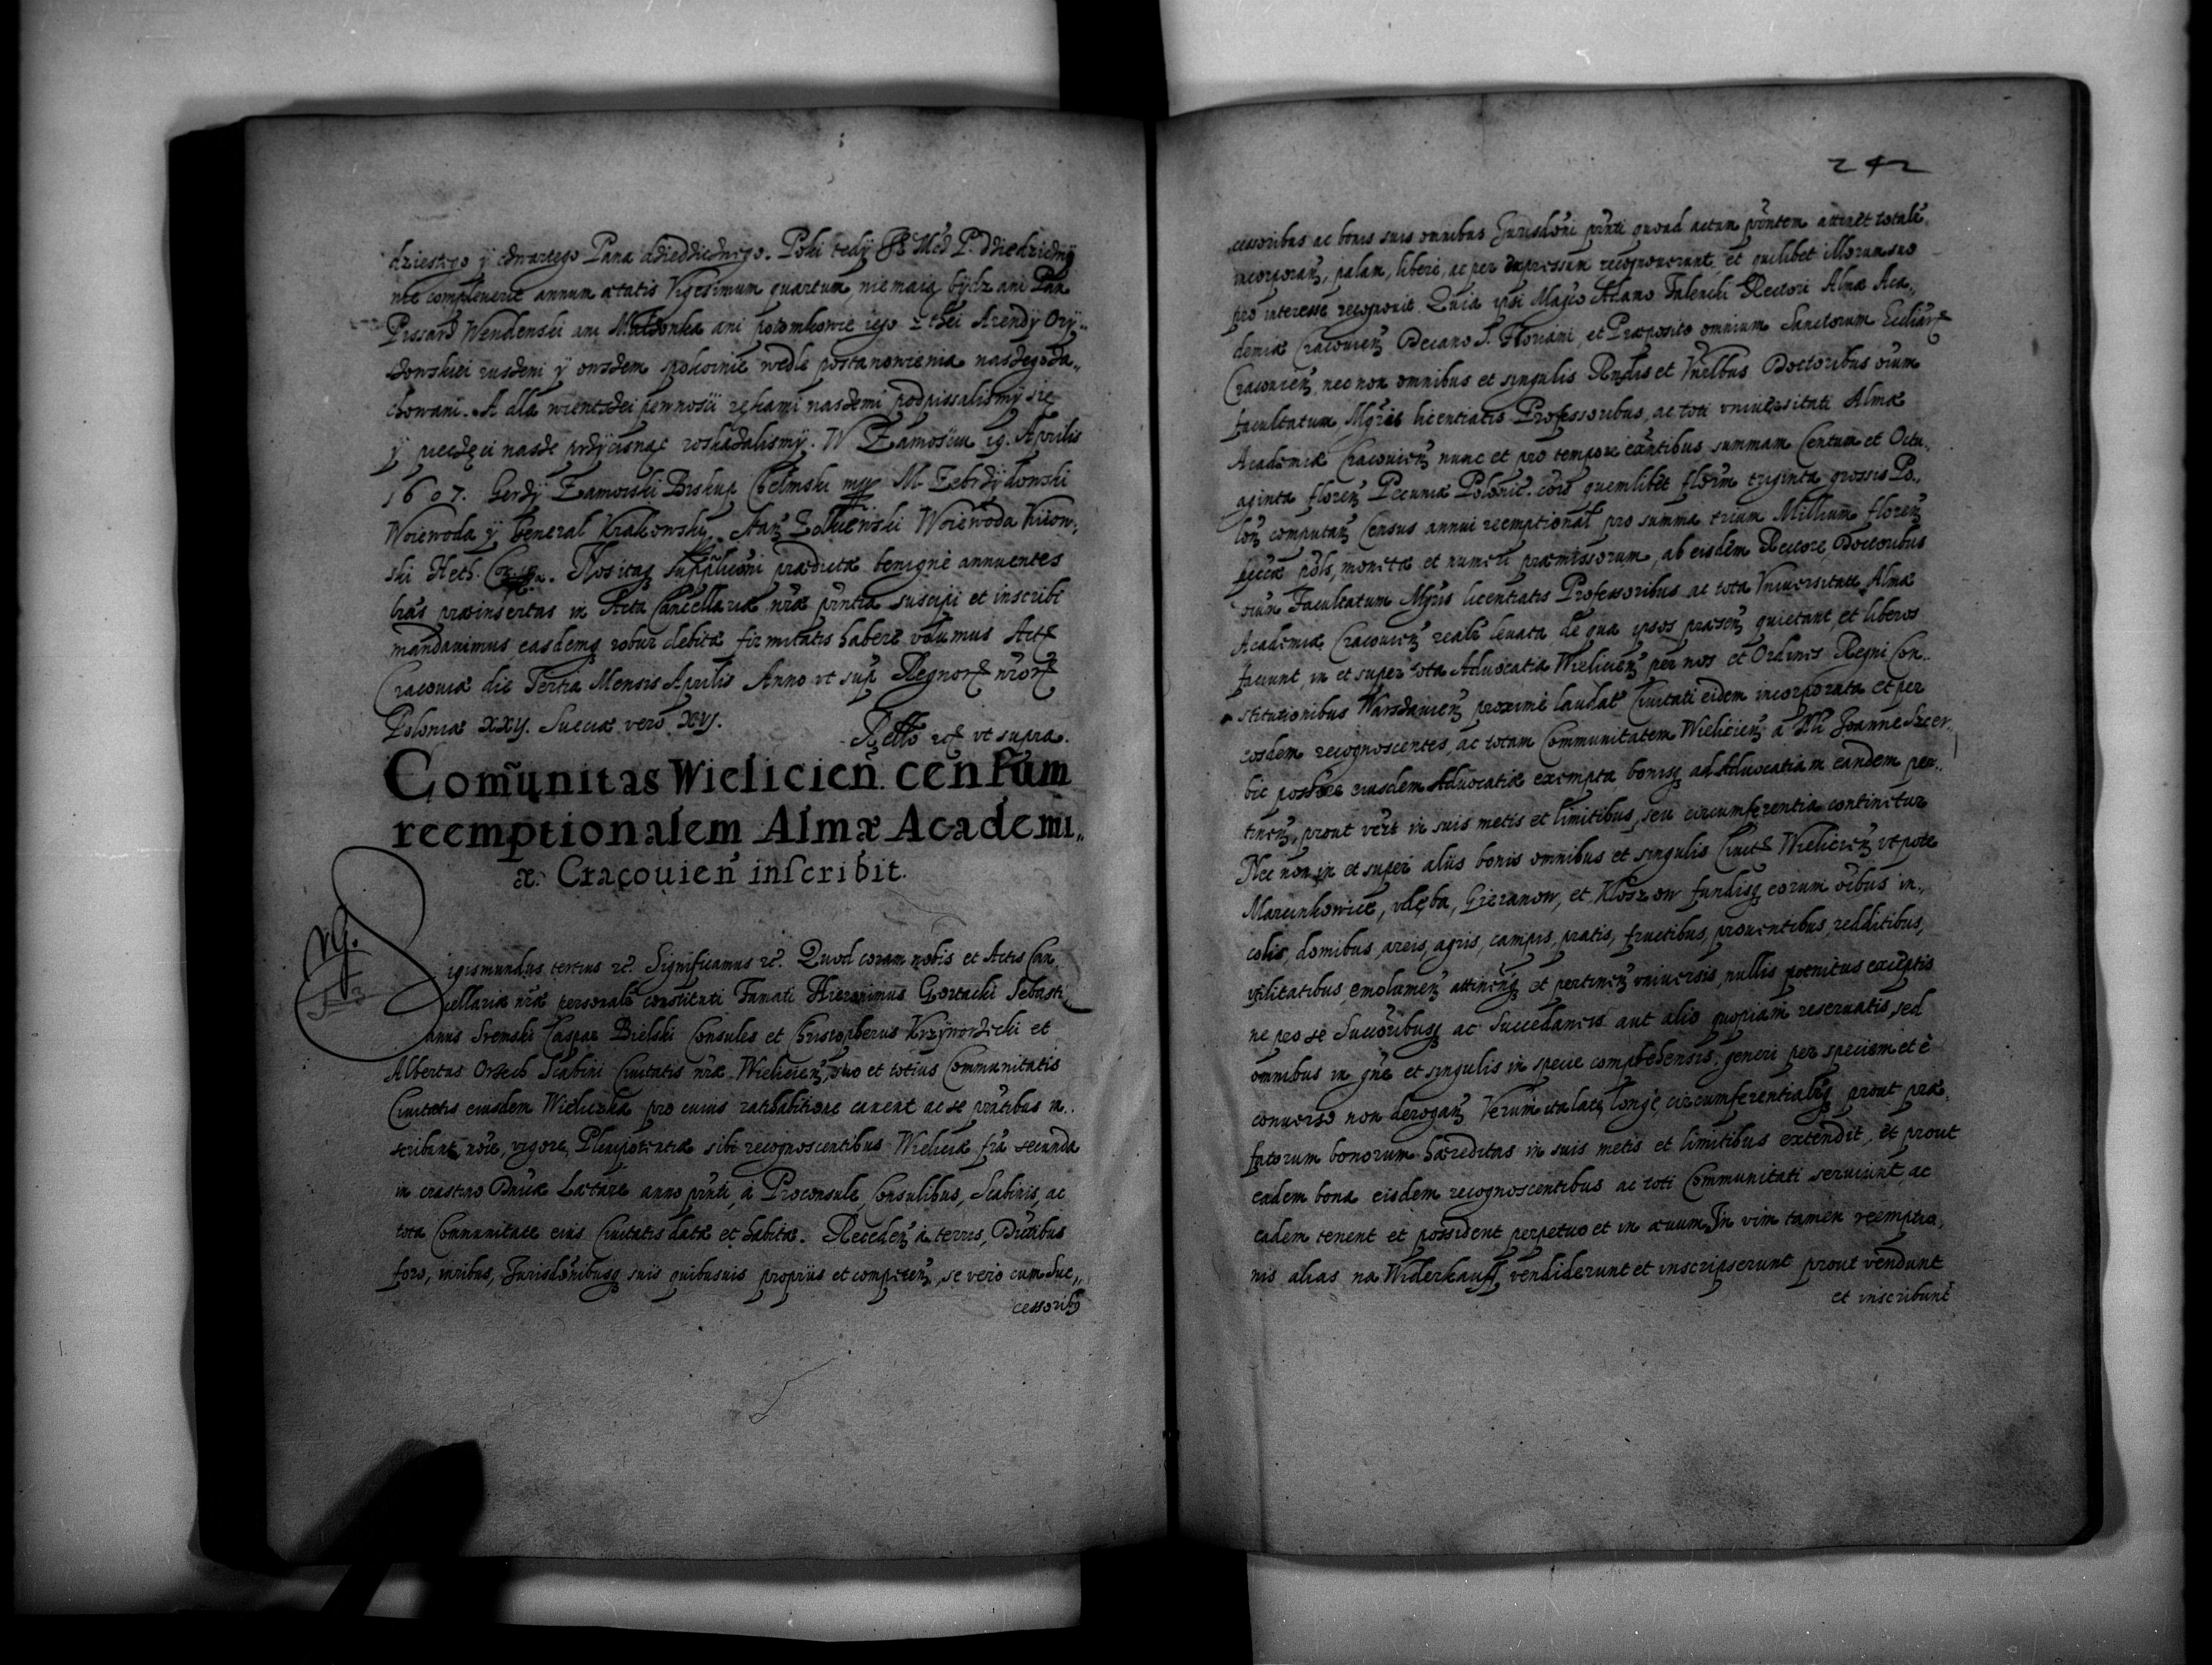 dziestego ÿ czwartego Pana dziedzicznego. Poki tedÿ Je° Mcz P. Dziedzicznÿ
non compleverit annum ætatis Vigesimum quartum, nie maią bydz ani Pan
Pissarz Wendenski ani Malzonka ani potomkowie iego z thei Arendÿ Orÿ„
szowskiei ruszeni ÿ owszem spokoinie wedle postanowienia naszego za„
chowani. A dla wientszei pewnosci rękami naszemi podpissalismÿ się
ÿ pieczęci nasze przÿcisnąc roskazalismÿ. W Zamosciu 19. Aprilis
1607. Gerzÿ Zamoiski Biskup Chelmski mp M. Zebrzÿdowski
Woiewoda ÿ General Krakowskÿ. Stan Zolkiewski Woiewoda kiiow„
ski Heth. Nos itaq supplicõni prædictæ benignè annuentes
lras præinsertas in Acta Cancellariæ nræ pñtia suscipi et inscribi
mandavimus easdemq robur debitæ firmitatis habere volumus Act
Cracoviæ die Tertia Mensis Aprilis Anno vt sup Regnor nror
Poloniæ XXIJ. Sueciæ verò XVJ.
Retto vt supra.
Com̃unitas Wielicieñ. cenſum
reemptionalem Almæ Academi„
æ Cracovieñ inſcribit.
Sigismundus tertius rc. Significamus rc. Quod coram nobis et Actis Can„
cellariæ nræ personalr constituti Famati Hieronimus Gortacki Sebasti
anus Sremski Caspar Bielski Consules et Christopherus Krzÿwordzicki et
Albertus Orzech Scabini Civitatis nræ Wielicien, suo et totius Communitatis
Civitatis eiusdem Wieliczka pro cuius ratihabitione cavent ac se pñtibus in„
scribunt nõie, vigore Plenipotentiæ sibi recognoscentibus Wieliciæ fria secunda
in crastino Dnicæ Lætare anno pñti, à Proconsule, Consulibus, Scabinis, ac
tota Communitate eius Civitatis datæ et habitæ. Receden à terris, Districtibus
foro, iuribus, Jurisdõnibusq suis quibusvis propriis et competen, se verò cum Suc„
cessoribq
242
cessoribus ac bonis suis omnibus Jurisdõni pñti quoad actum pñtem attinet totalr
incorporan, palam, liberè, ac per expressum recognoverunt, et quilibet illorum suo
pro interesse recognovit. Quia ipsi Magco Adamo Falencki Rectori Almæ Aca„
demiæ Cracovien Decano S. Floriani, et Præposito omnium Sanctorum Ecclar
Cracovien nec non omnibus et singulis Rndis et Vnlbus Doctoribus oium
facultatum, Mgris licentiatis Professoribus, ac toti vniversitati Almæ
Academiæ Cracovien nunc et pro tempore exñtibus summam Centum et Octu„
aginta floren Pecuniæ Polonic. còis quemlibet florm triginta grossis Po„
lon computan Census annui reemptional pro summa trium Millium floren
pecciæ pols, monetæ et numeri præmissorum, ab eisdem Rectore Doctoribus
oium Facultatum Mgris licentiatis Professoribus ac tota Vniversitate Almæ
Academiæ Cracovien realr levata de qua ipsos præsen quietant, et liberos
faciunt, in et super tota Advocatia Wielicien per nos et Ordines Regni Con„
stitutionibus Warszavien proximè laudat Civitati eidem incorporata et per
eosdem recognoscentes, ac totam Communitatem Wielicien à Nli Joanne Szcer„
bic possre eiusdem Advocatiæ exempta bonisq ad Advocatiam eandem per„
tinen, prout vert in suis metis et limitibus, seu circumferentia continetur
Nec non in et super aliis bonis omnibus et singulis Civit Wielicien vtpote
Marcinkowice, vlęba, Gieranow, et Kloszow fundisq eorum oibus in„
colis, domibus, areis, agris, campis, pratis, fructibus, proventibus, redditibus,
vtilitatibus, emolumen attinenq et pertinen vniversis, nullis poenitus exceptis
ne pro se Succribusq ac Succedaneis aut alio quopiam reservatis, sed
omnibus in gñe et singulis in specie comprehensis, generi per speciem et è
converso non derogan Verum ita latè, longè, circumferentialrq prout præ„
fatorum bonorum hæreditas in suis metis et limitibus extendit, et prout
eadem bona eisdem recognoscentibus ac toti Communitati serviunt, ac
eadem tenent et possident perpetuo et in ævum, In vim tamen reemptio„
nis alias na Widerkauff vendiderunt et inscripserunt prout vendunt
et inscribunt